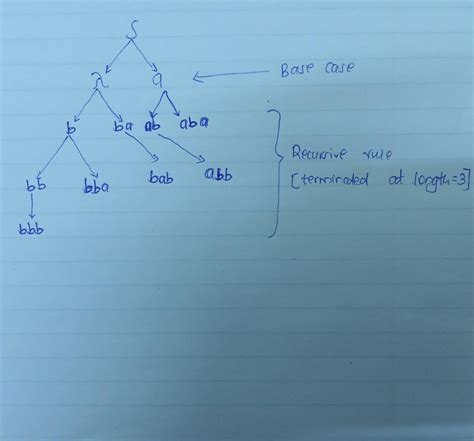 S
λ a Base case
b ba ab aba
Recursive rule
bb bba bab abb [terminated at length=3]
bbb